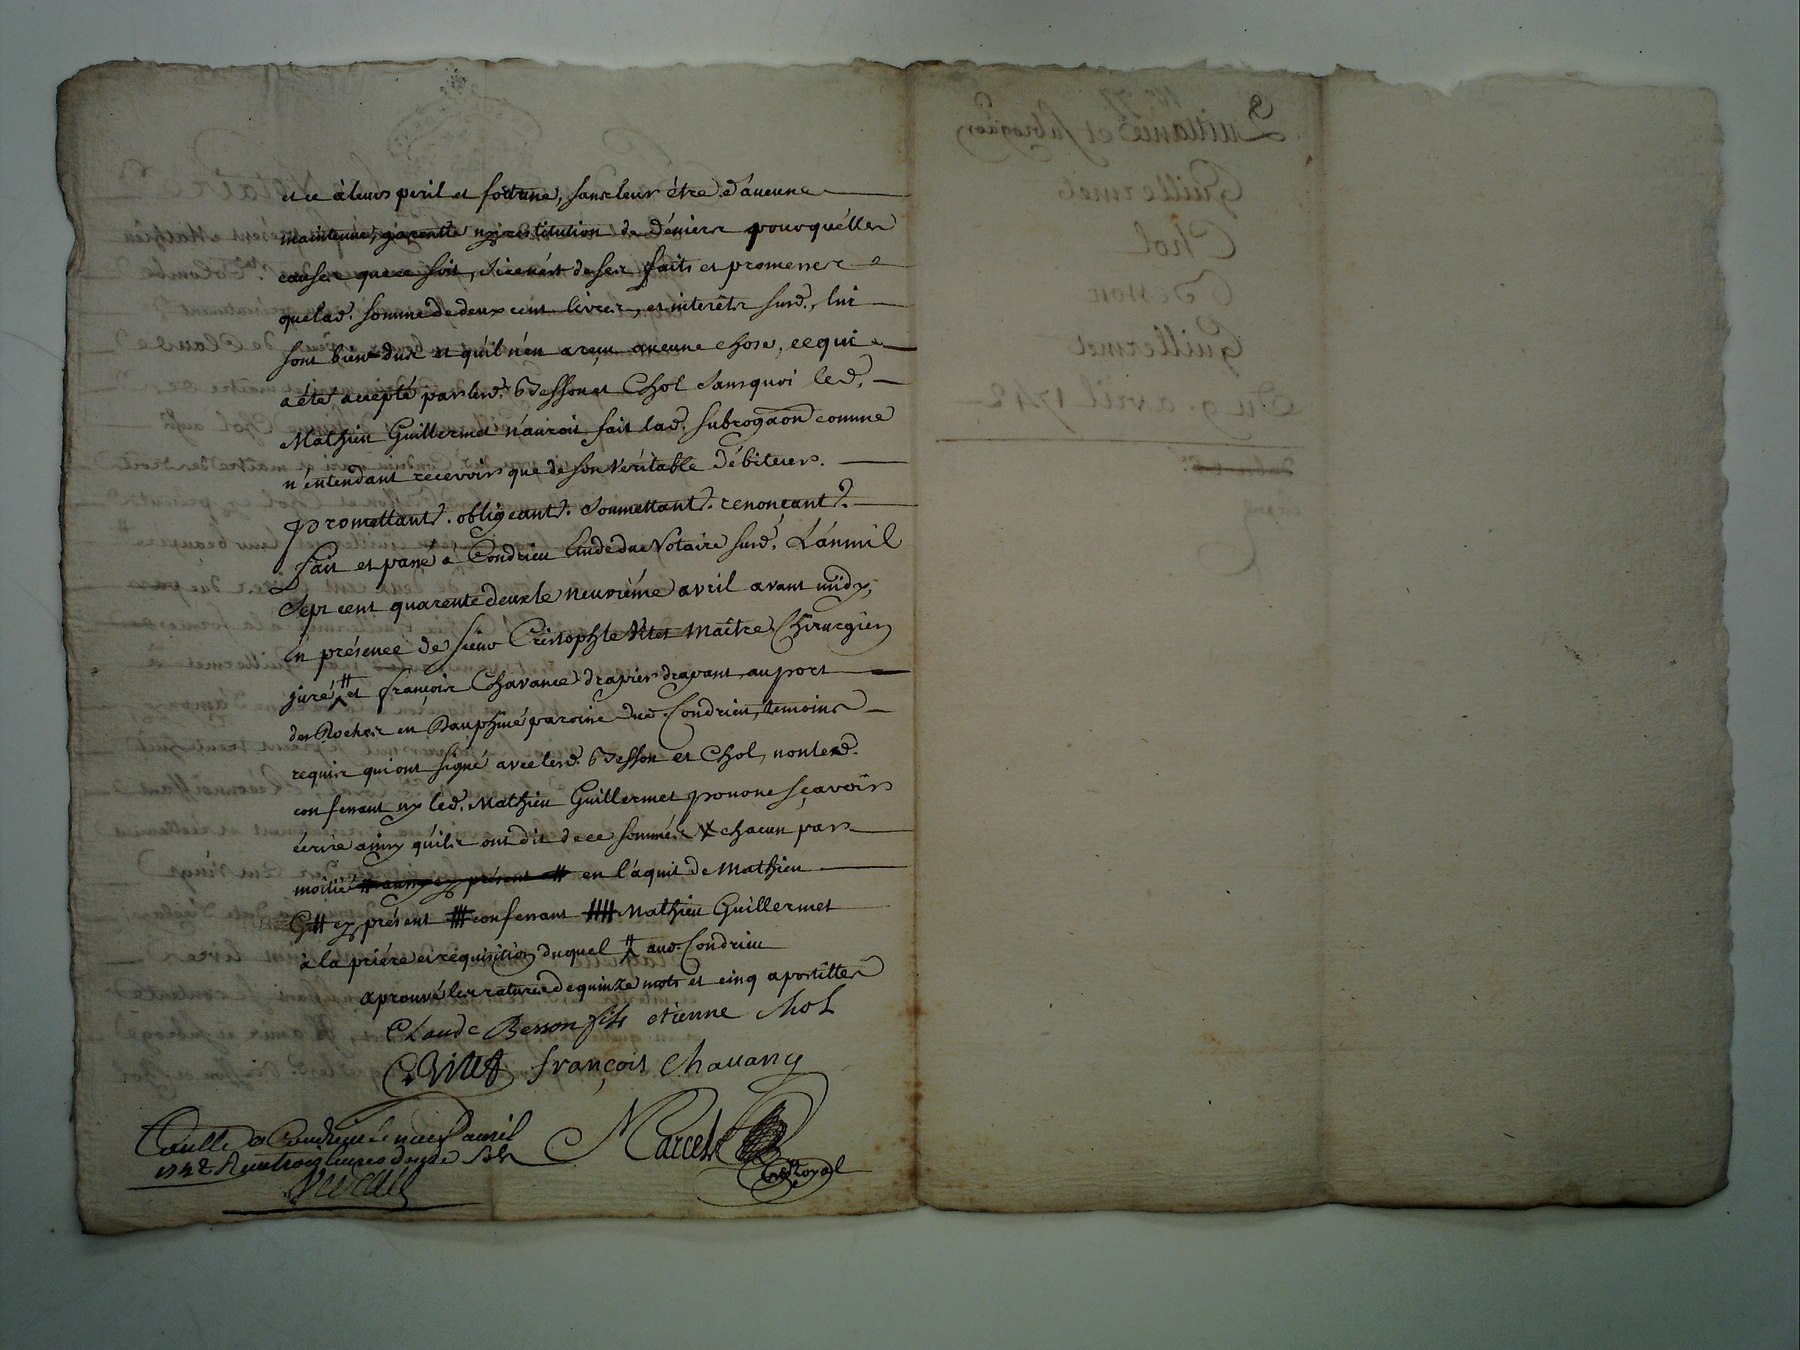 et ce à leurs peril et fortune, sans leur être d'aucune
maintenue, garentie ny restitution de déniers pour quélles
causes que ce soit, si cenést de ses faits et promesses
que lad. somme de deux cent livres, et interêts susd., lui
sont bien dus et qu'il n'en a reçu aucune chose, ce qui
a été accepté par lesd. Besson et Chol sans quoi led.
Mathieu Guillermet n'auroit fait lad. subrogãon comme
n'entendant recevoir que de son véritable débiteur.
Promettant. obligeant. soumettant. renonçant.
fait et passé à Condrieu étude du Notaire susd. L'an mil
sept cent quarente deux le neuvième avril avant midy,
en présence de sieur Cristophle Vitet maître Chirurgien
juré # et françois Chavance drapier drapant au port
des Roches en Dauphiné paroisse dud. Condrieu, temoins
requis qui ont signé avec lesd. Besson et Chol, non led.
confessant ny led. Mathieu Guillermet pour ne sçavoir
écrire ainsy qu'ils ont dit de ce sommés x chacun par
moitié # aussy cy présent # en l'aquit de Mathieu
G## cy présent ### confessant #### Mathieu Guillermet
à la priére et réquisition duquel # aud. Condrieu
aprouvé les ratures de quinze mots et cinq apostilles
Claude Besson fils etienne Chol
CVitet françois Chauany
Marcel
Nre Royal
Conllé a Condrieu le neuf avril
1742 Reçu trois livres
Quittance et subrogãon
Guillermet
Chol
Besson
Guillermet
Du 9. avril 1742